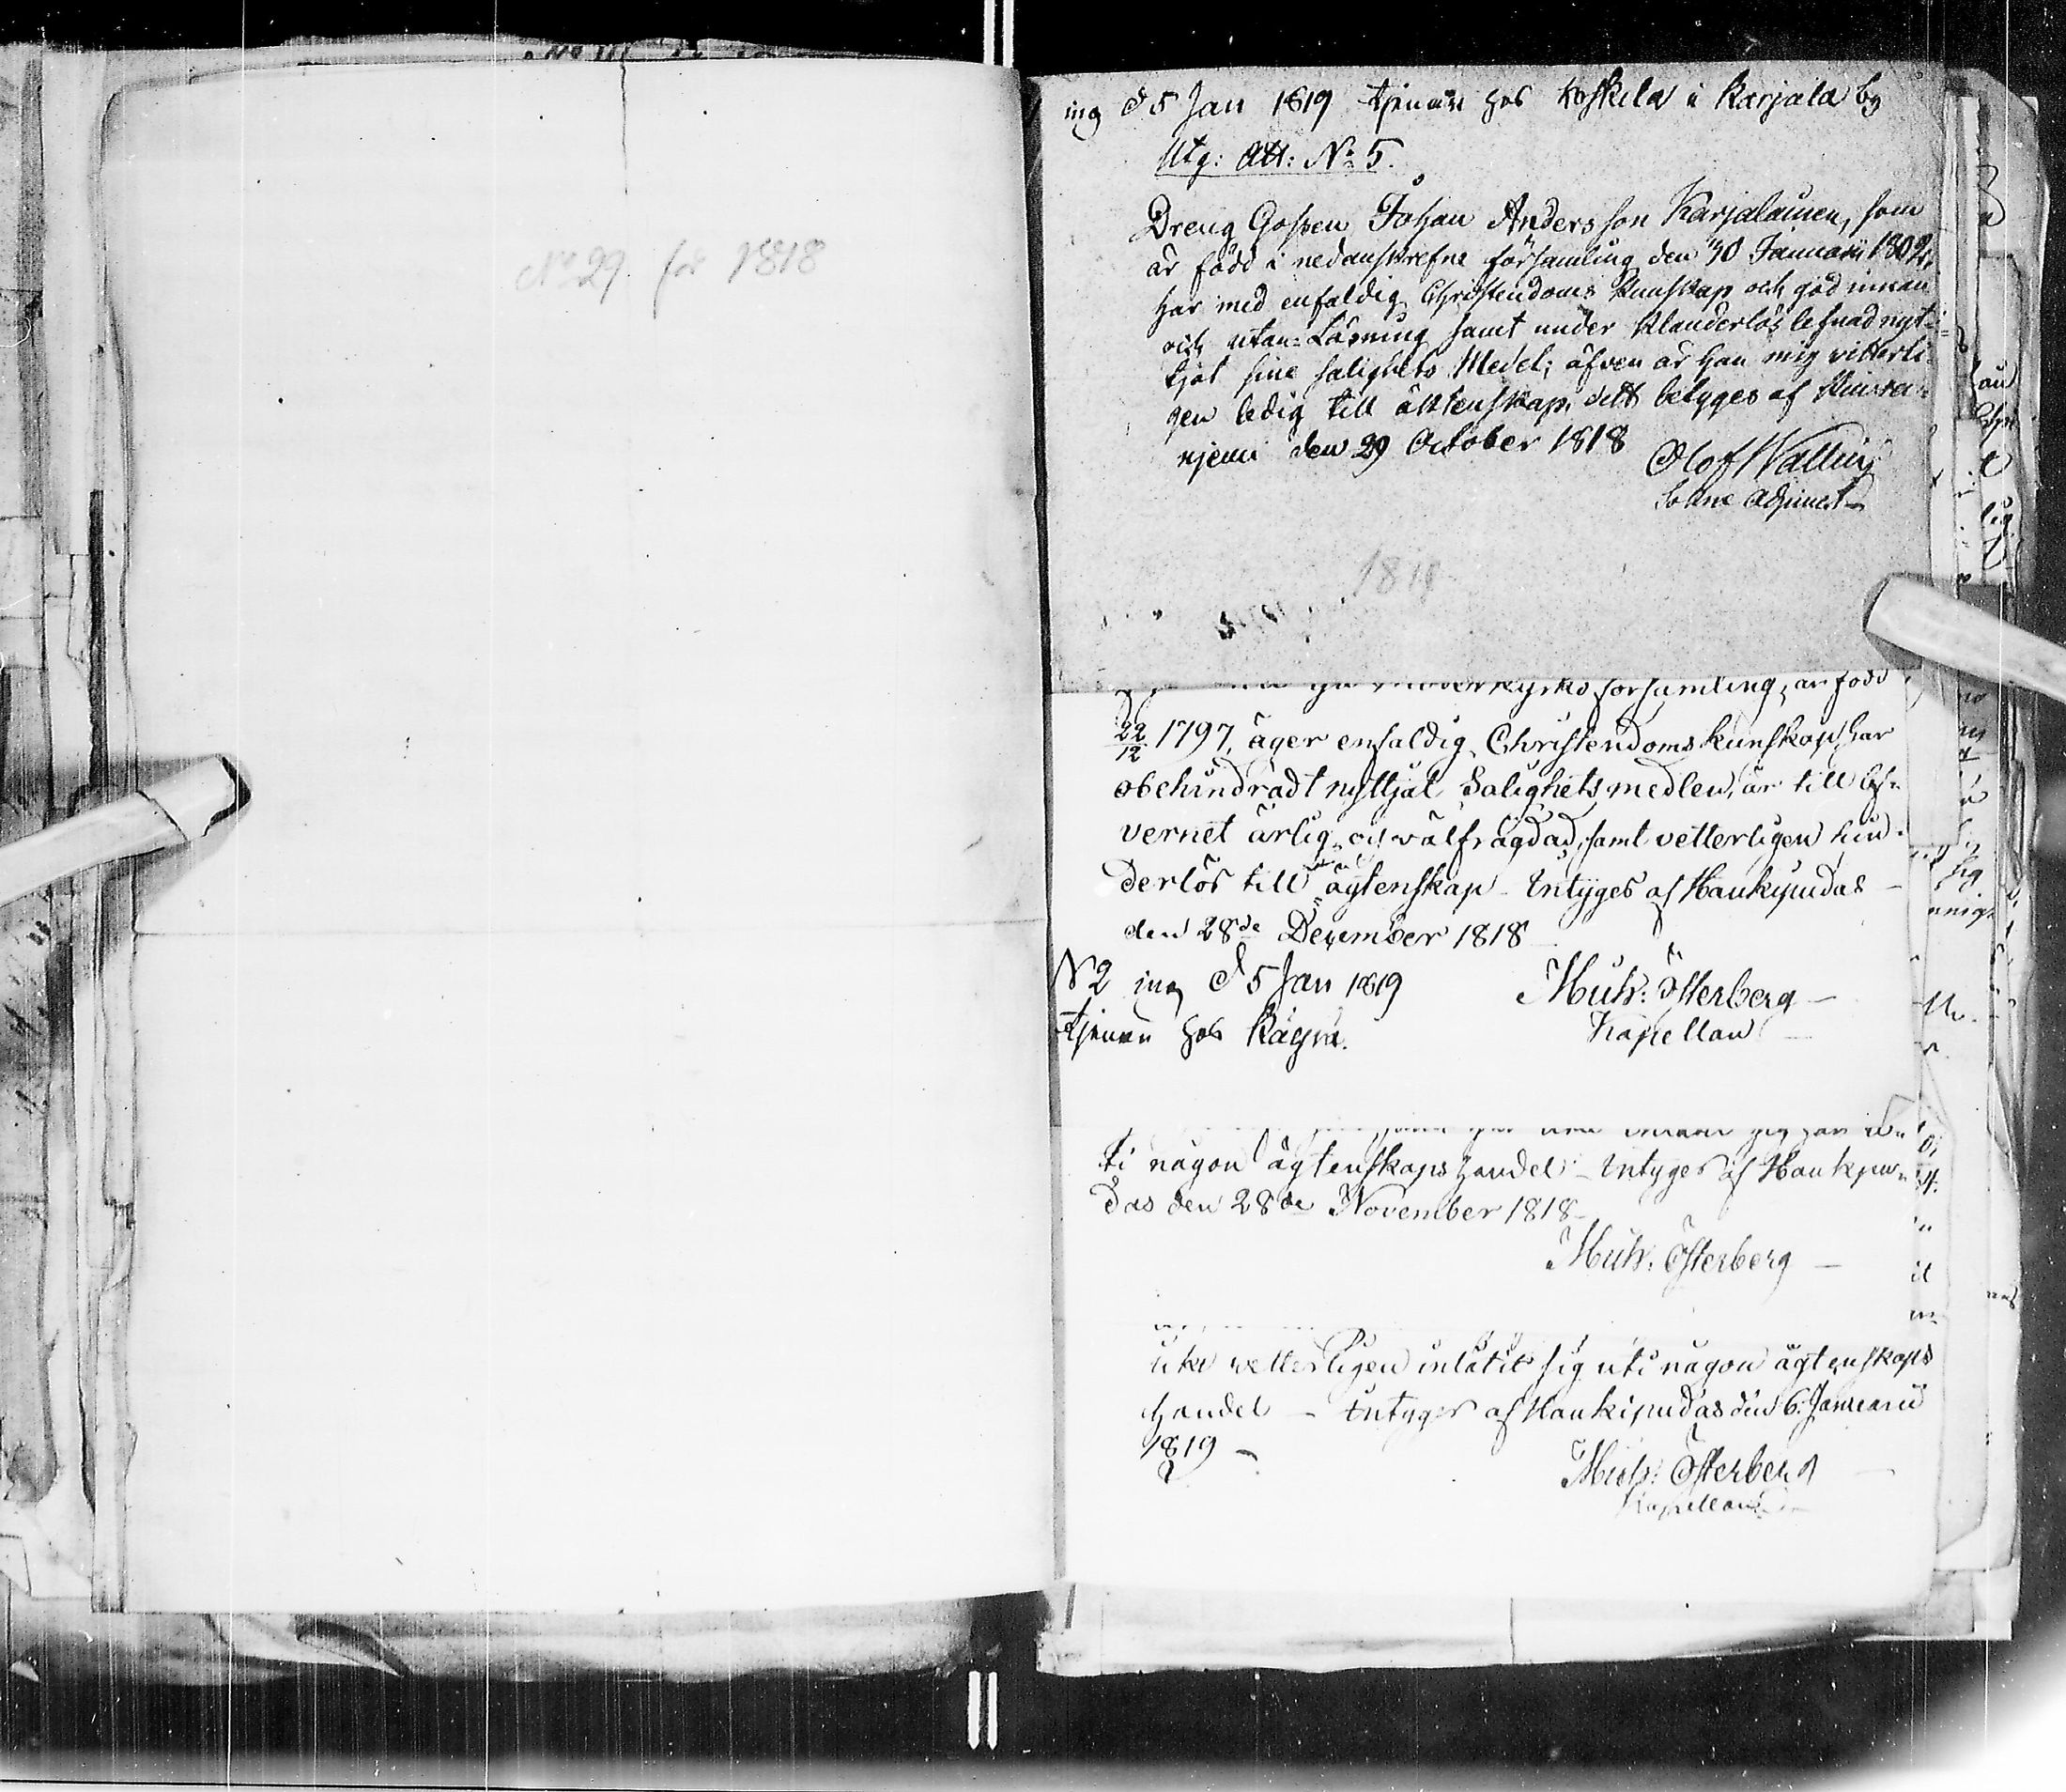 No 29 för 1818
ing d 5 Jan 1819 tjenar hos Koskela i Karjala by
Utg: Att: No 5.
Dreng Gossen Johan Andersson Karjalainen, som
är född i nedanskrefne församling den 30 Januarii 1802,
har med enfaldig Christendoms Kunskap och god innan
och utan-Läsning samt under klanderlös lefnad nyt-
tjat sine salighets Medel; äfven är han mig vitterli-
gen ledig till äktenskap, dett betyges af
njemi den 29 October 1818
Olof Wallin
Sokne Adjunct
1818
kyrko församling, är född
22/12 1797, äger enfaldig Christendoms kunskap, har
obehindradt nyttjat Salighets medlen, är till lef-
vernet ärlig och välfrägdad, samt vetterligen hin-
derlös till ägtenskap - Intyges af Haukipudas
den 28de December 1818
N 2 ing d 5 Jan 1819
tjenar hos
Mich: Österberg
Kapellan
ti någon ägtenskaps handel - Intyges af Haukipu-
das den 28de November 1818
Mich: Österberg
icke vetterligen inlåtit sig uti någon ägtenskaps
handel - Intyges af Haukipudas den 6. Januarii
1819
Mich: Österberg
Kapellan